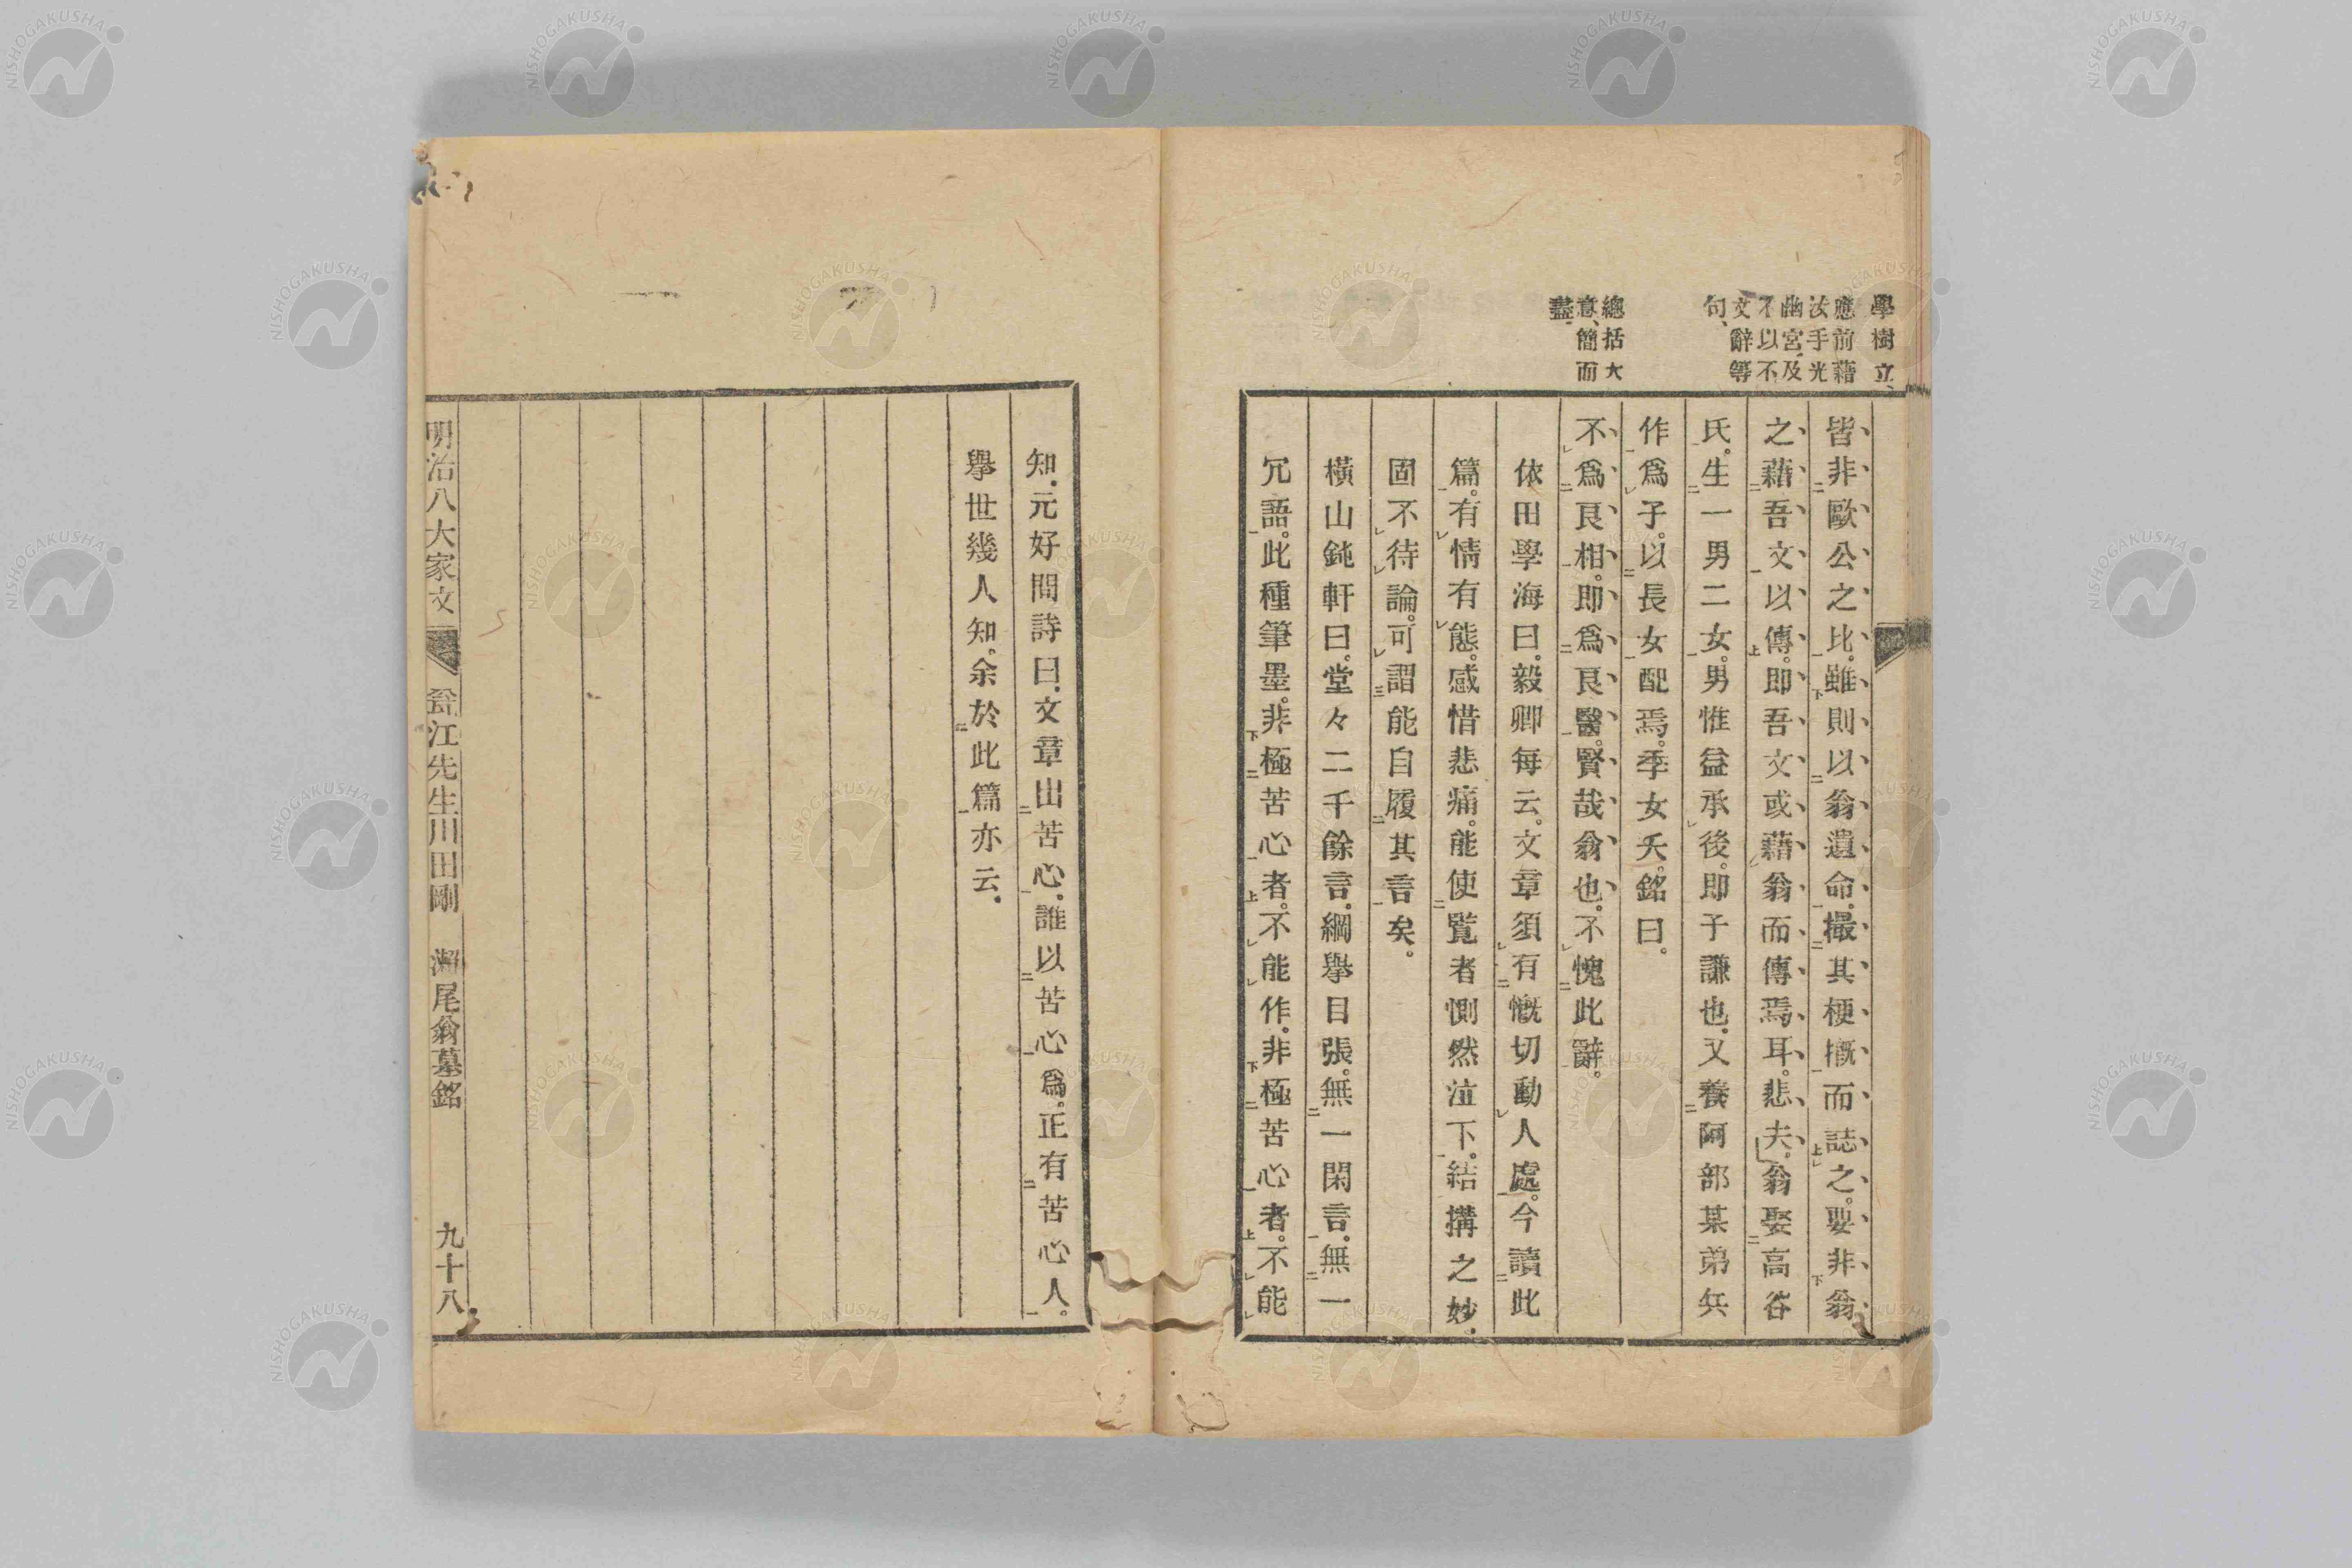 學樹立、
應前藉
汝手光
幽宮、及
不以不
文辭等
句、
總括大
意、簡而
盡、
皆非歐公之比。雖則以翁遺命。撮其梗概而誌之。要非翁
之藉吾文以傳。即吾文或藉翁而傳焉耳。悲夫。翁娶高谷
氏。生一男二女。男惟益承後。即子謙也。又養阿部某弟兵
作爲子。以長女配焉。季女夭。銘曰。
不爲良相。即爲良醫。賢哉翁也。不愧此辭。
依田學海曰。毅卿每云。文章須有慨切動人處。今讀此
篇。有情有態。感惜悲痛。能使覽者惻然泣下。結搆之妙。
固不待論。可謂能自履其言矣。
橫山鈍軒曰。堂々二千餘言。綱擧目張。無一閑言。無一
冗語。此種筆墨。非極苦心者。不能作。非極苦心者。不能
知。元好問詩曰。文章出苦心。誰以苦心爲。正有苦心人。
擧世幾人知。余於此篇亦云。
明治八大家文 甕江先生川田剛 瀨尾翁墓銘 九十八
NISHOGAKUSHA